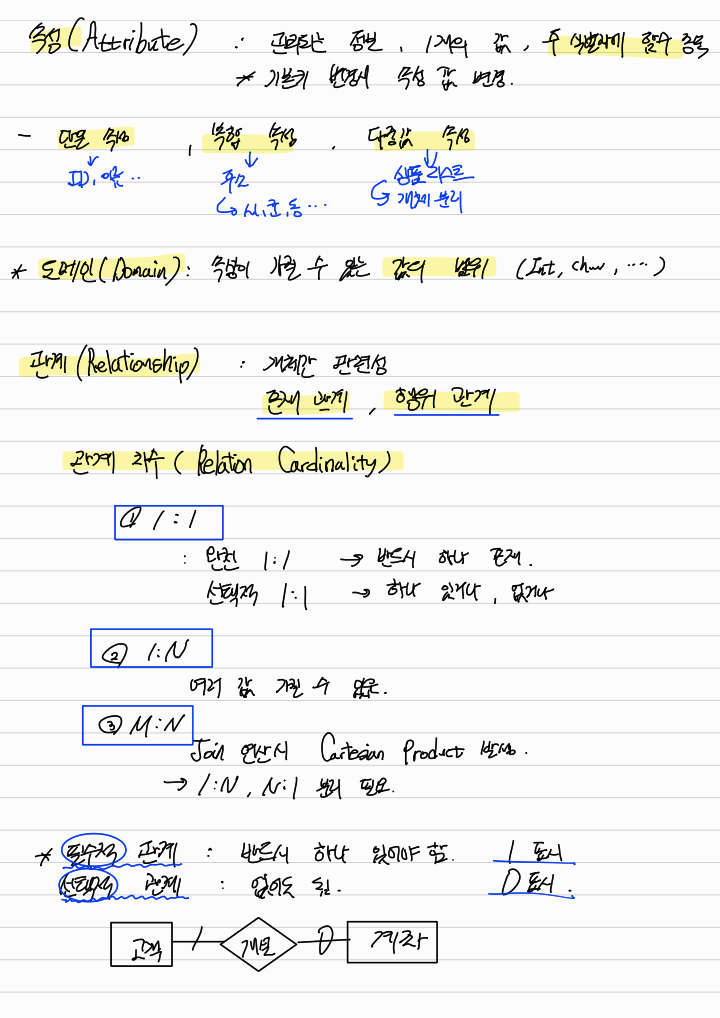 속성(Attribute) : 관리되는 정보, 1개의 값, 주 식별자에 함수 종속
* 기본키 변경시 속성 값 변경.
- 단순 속성, 복합 속성, 다중값 속성
ID, 이름.. 주소 상품 리스트
↳ 시, 군, 동... 개체 분리
* 도메인(Domain): 속성이 가질 수 있는 값의 범위 (Int, char, ....)
관계(Relationship) : 개체간 관련성
존재 관계, 행위 관계
관계 차수(Relation Cardinality)
① 1:1
: 완전 1:1 → 반드시 하나 존재.
선택적 1:1 → 하나 있거나, 없거나
② 1:N
여러 값 가질 수 있음.
③ M:N
Join 연산시 Cartesian Product 발생.
→ 1:N, N:1 분리 필요.
* 필수적 관계 : 반드시 하나 있어야 함. 1 표시
선택적 관계 : 없어도 됨. 0 표시.
고객 개설 계좌